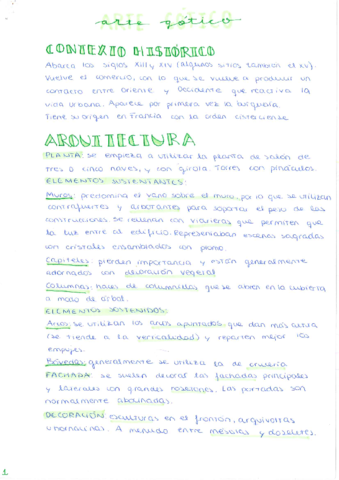 arte gótico
CONTEXTO HISTÓRICO
Abarca los siglos XIII y XIV (algunos sitios también el XV).
Vuelve el comercio, con lo que se vuelve a producir un
contacto entre Oriente y Occidente que reactiva la
vida urbana. Aparece por primera vez la burguesía.
Tiene su origen en Francia con la orden cisterciense.
ARQUITECTURA
PLANTA: se empieza a utilizar la planta de salón de
tres o cinco naves, y con girola. Torres con pináculos.
ELEMENTOS SUSTENTANTES:
Muros: predomina el vano sobre el muro, por lo que se utilizan
contrafuertes y arbotantes para soportar el peso de las
construcciones. Se rellenan con vidrieras que permiten que
la luz entre al edificio. Representaban escenas sagradas
con cristales ensamblados con plomo.
Capiteles: pierden importancia y están generalmente
adornados con decoración vegetal
Columnas: haces de columnillas que se abren en la cubierta
a modo de árbol.
ELEMENTOS SOSTENIDOS:
Arcos: se utilizan los arcos apuntados, que dan más altura
(se tiende a la verticalidad) y reparten mejor los
empujes.
Bóvedas: generalmente se utiliza la de crucería
FACHADA: se suelen decorar las fachadas principales
y laterales con grandes rosetones. Las portadas son
normalmente abocinadas.
DECORACIÓN: esculturas en el frontón, arquivoltas
u hornacinas. A menudo entre ménsulas y doseletes.
1